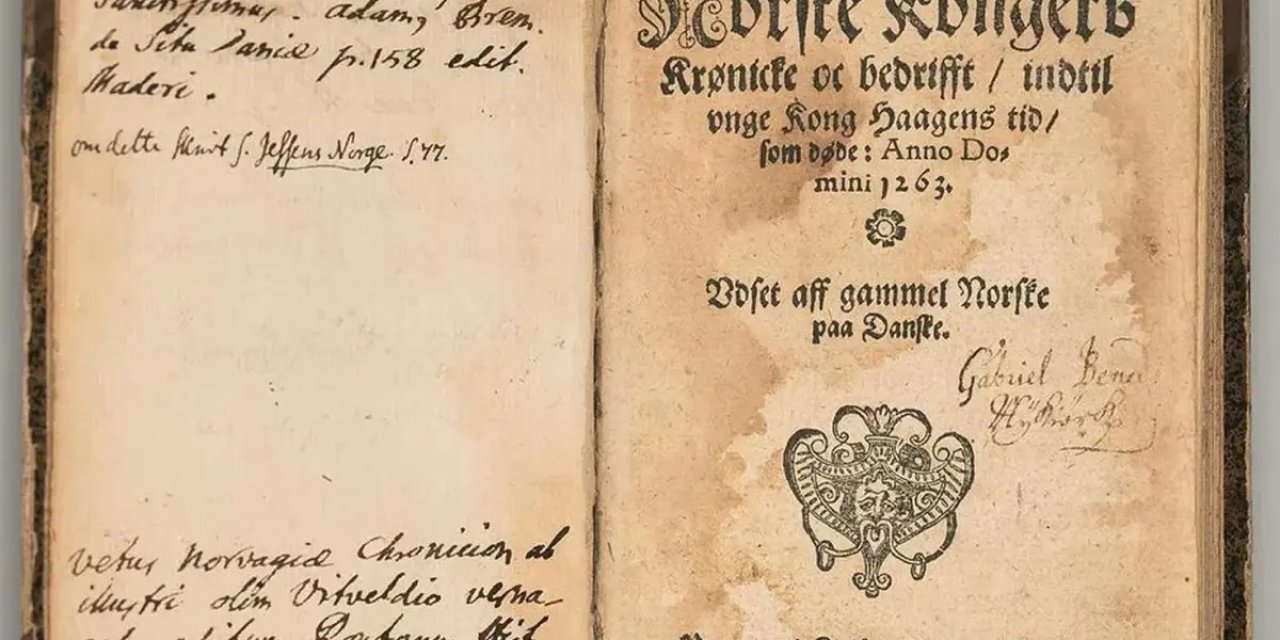 sanctissimus. Adam, Brem.
de Situ Daniæ p. 158 edit.
Maderi.
om dette skrivt s. Jessens Norge. S. 77.
vetus Norvagiæ Chronicion ab
illustri olim Vitveldio verna-
Norske Kongers
Krønicke oc bedrifft / indtil
vnge Kong Haagens tid /
som døde: Anno Do-
mini 1263.
Vdset aff gammel Norske
paa Danske.
Gabriel